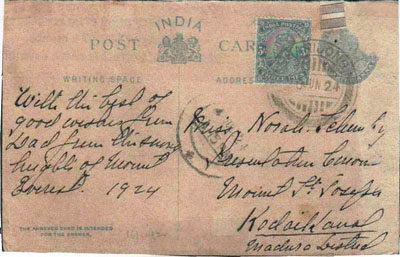 INDIA
POST CARD
WRITING SPACE
ADDRESS
With the best of
good wishes from
Dad from the snowy
heights of Mount
Everest. 1924
Miss Norah
Presentation Convent
Mount St Joseph
Kodaikanal
Madura District
THE ANNEXED CARD IS INTENDED
FOR THE ANSWER.